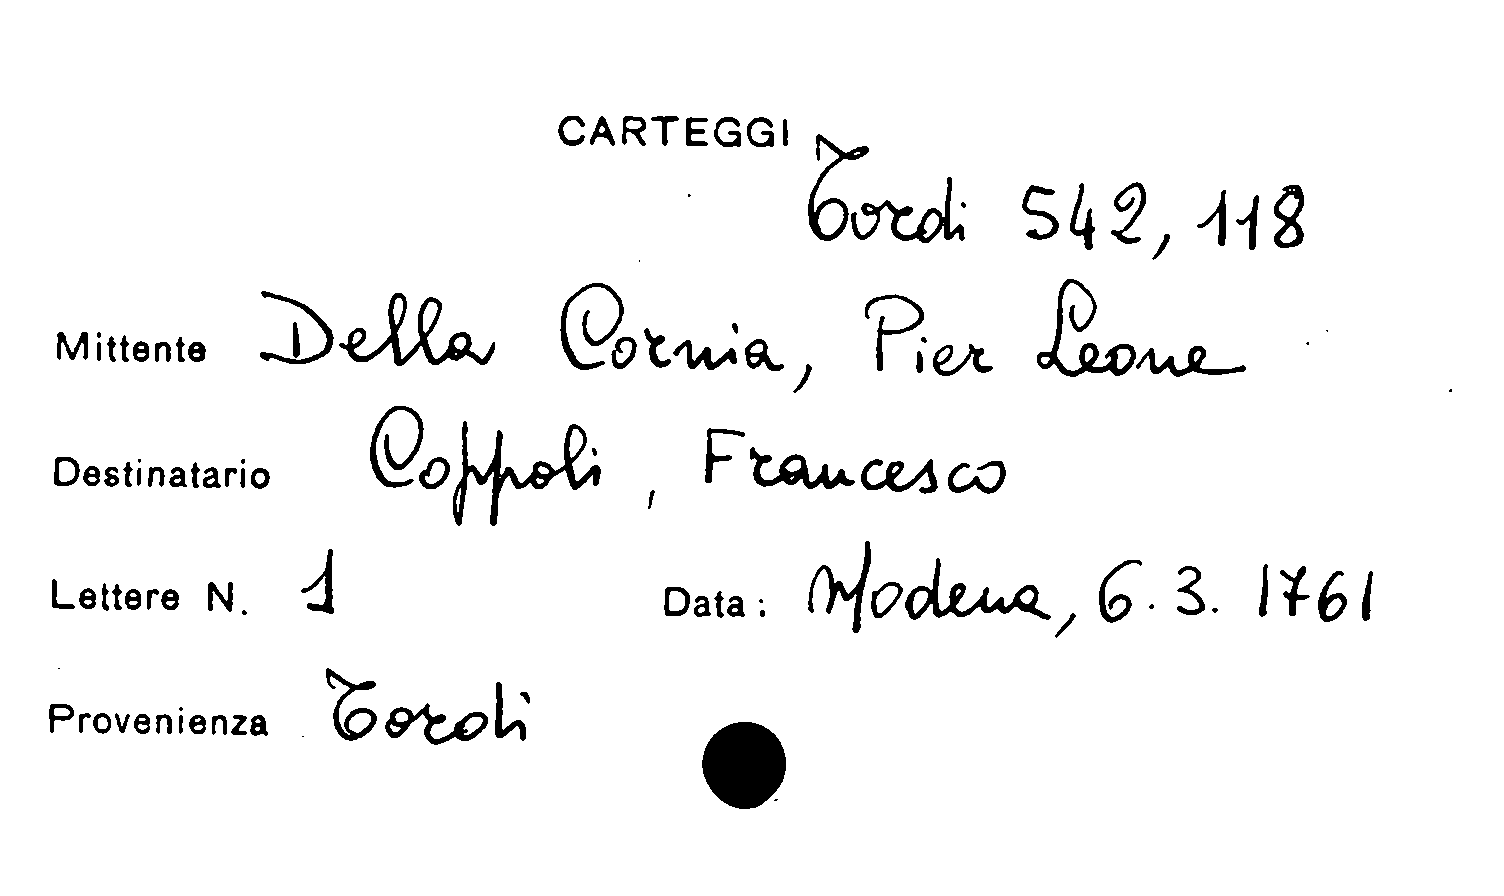 CARTEGGI
Tordi 542, 118
Mittente Della Cornia, Pier Leone
Destinatario Coppoli, Francesco
Lettere N. 1 Data: Modena, 6. 3. 1761
Provenienza Tordi